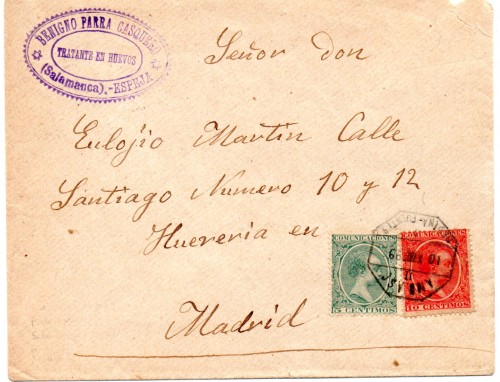 BENIGNO PARRA CASQUERO
TRATANTE EN HUEVOS
(Salamanca).-ESPEJA
Señor don
Eulojio Martin Calle
Santiago Numero 10 y 12
Hueveria en
Madrid
COMUNICACIONES
5 CENTIMOS
COMUNICACIONES
10 CENTIMOS